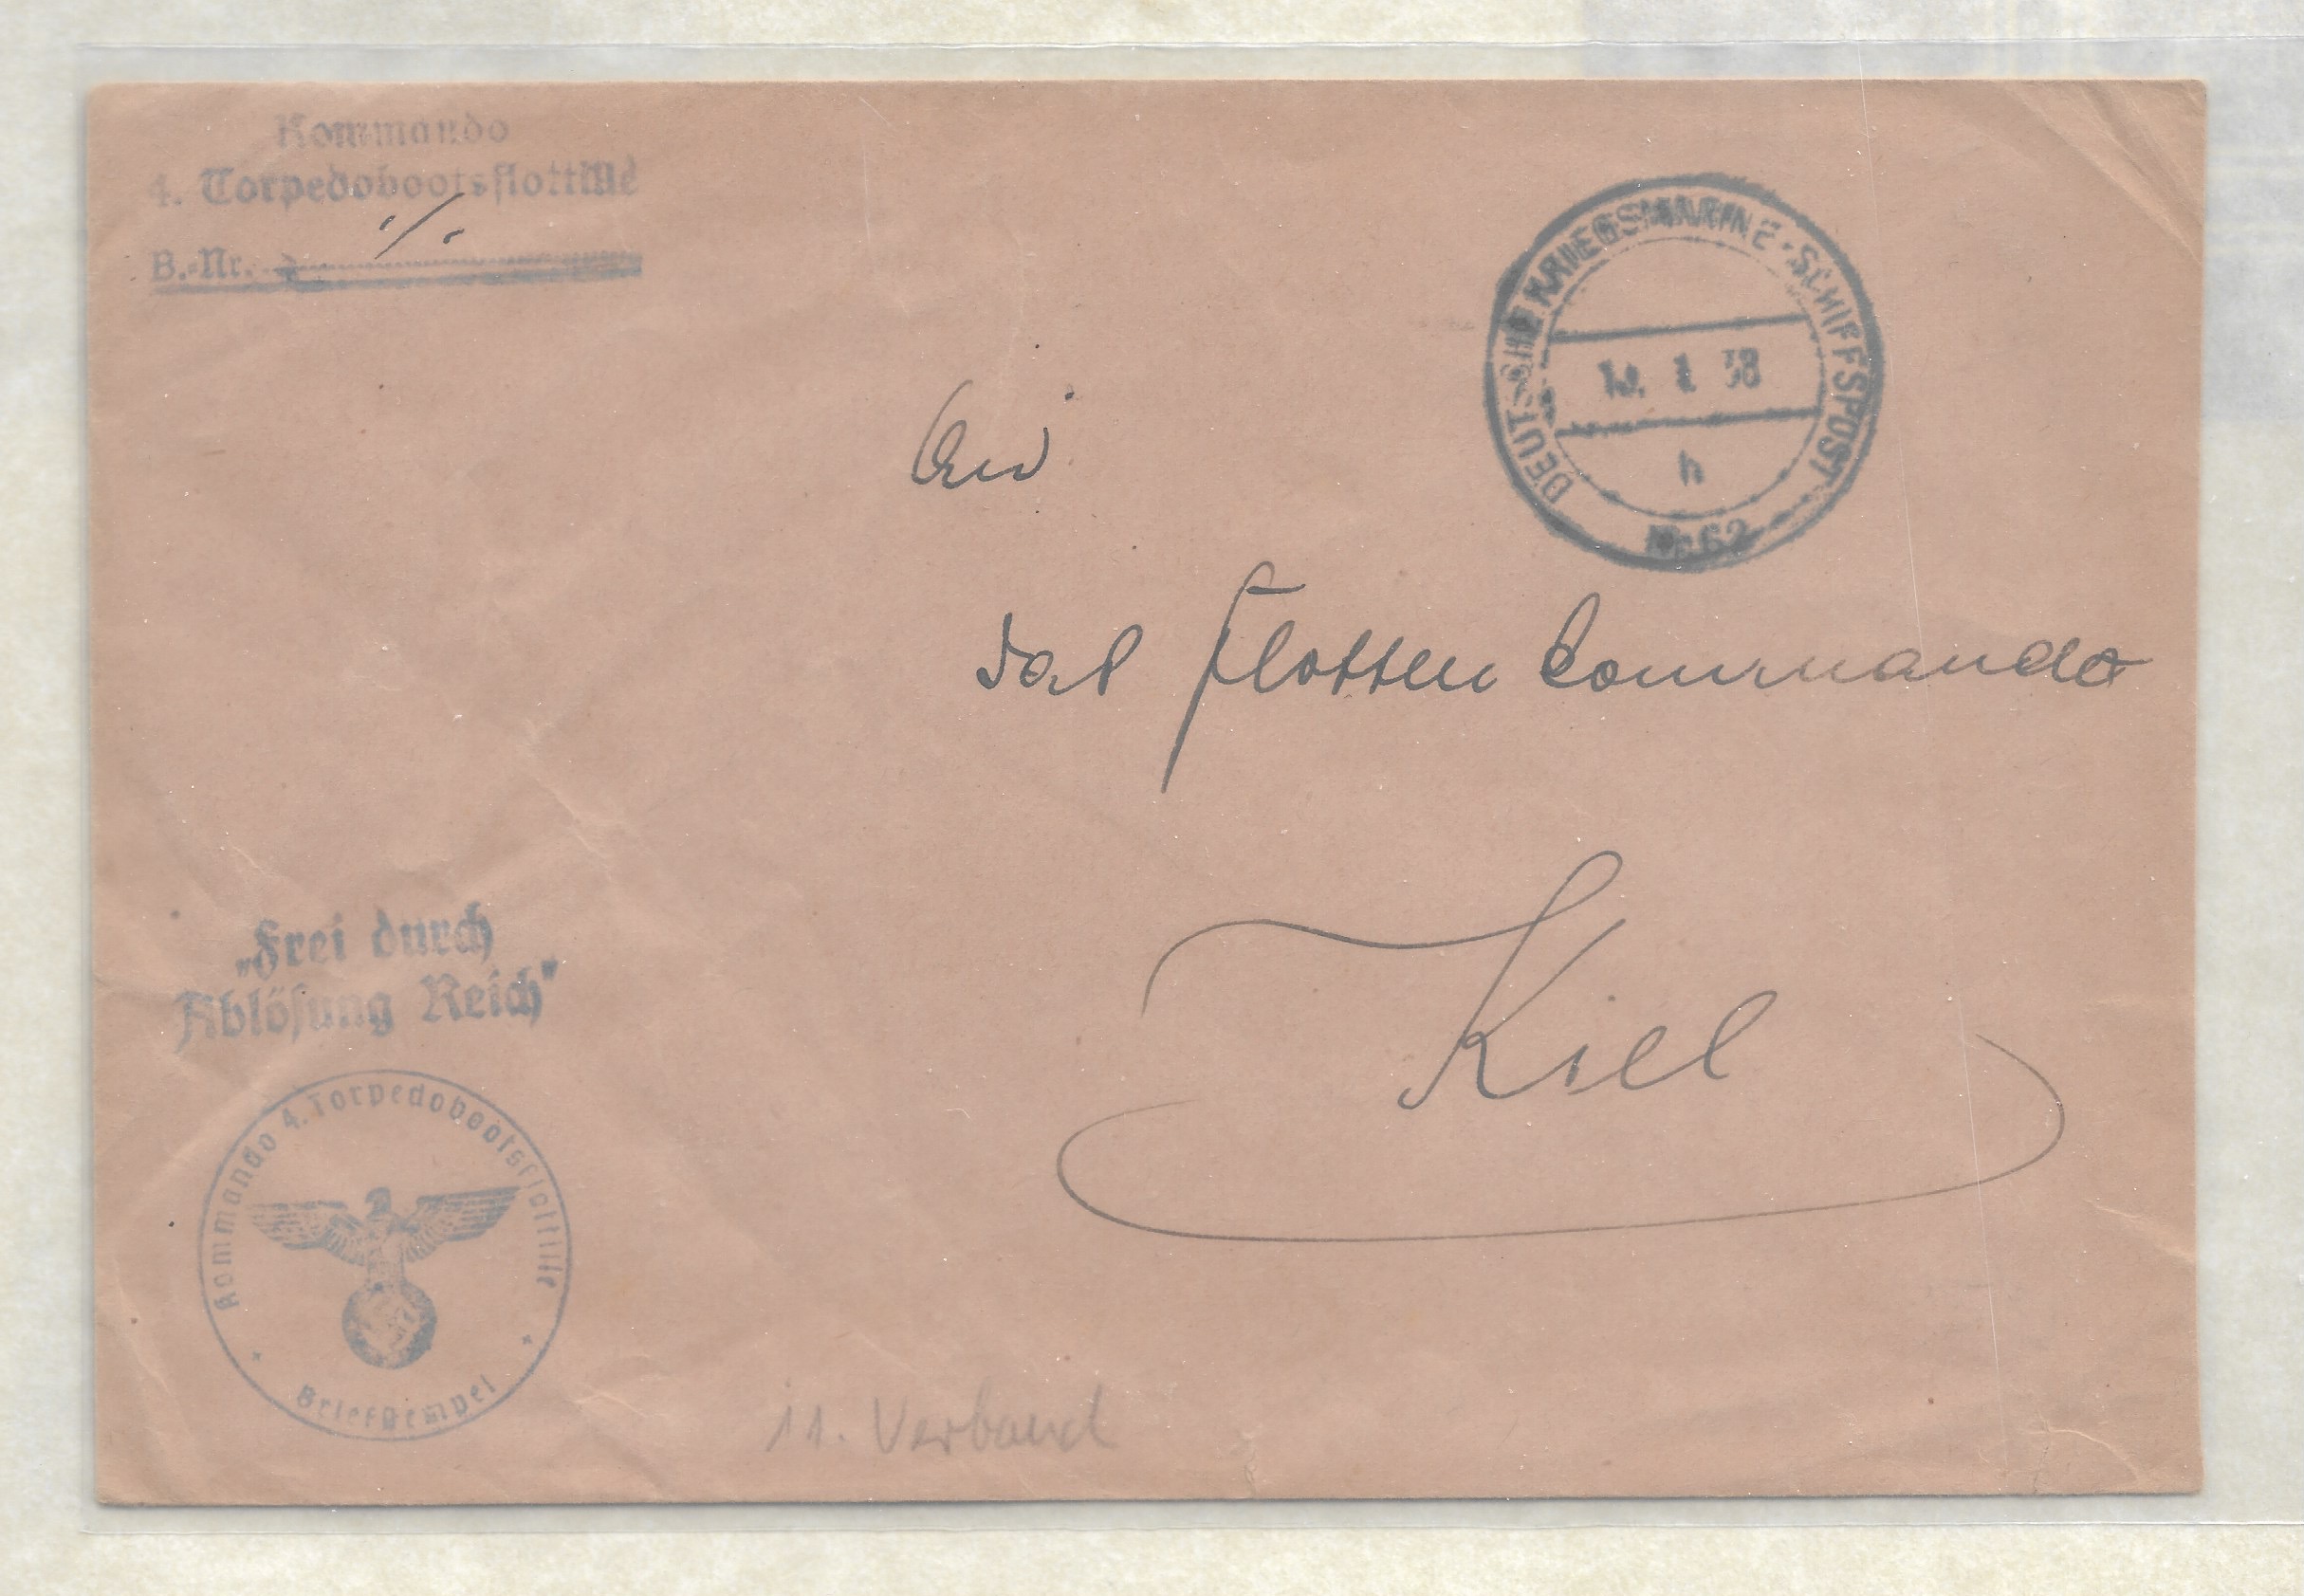 Kommando
4. Torpedobootsflottille
B.-Nr.
DEUTSCHE KRIEGSMARINE-SCHIFFSPOST
38
h
Nr. 62
An
das Flottenkommando
Kiel
„Frei durch
Ablösung Reich"
Kommando 4. Torpedobootsflottille
Briefstempel
11. Verband